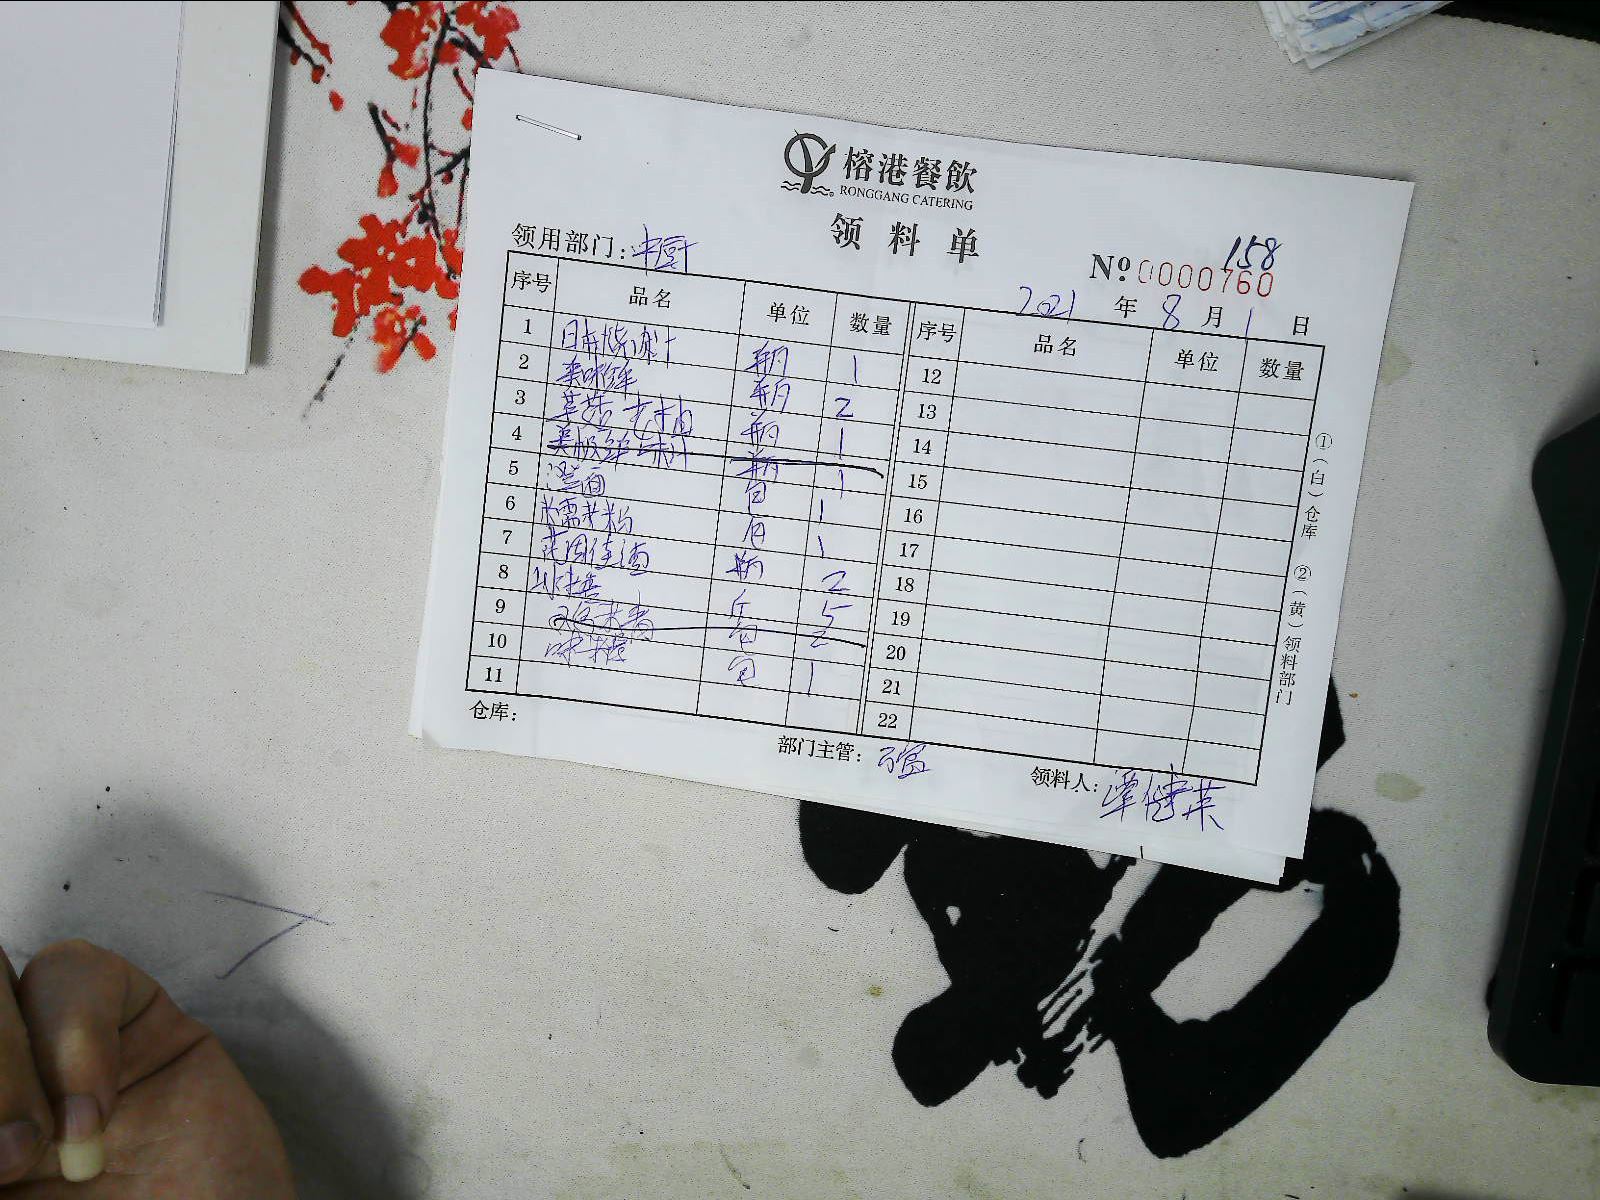 榕港餐飲
RONGGANG CATERING
领料单
领用部门:中厨
158
Nº 0000760
2021 年 8 月 1 日
序号 品名 单位 数量 序号 品名 单位 数量
1 日本烧汁 瓶 1 12
2 美味鲜 瓶 2 13
3 草菇老抽 瓶 1 14
4 瓶 1 15
5 澄面 包 1 16
6 糯米粉 包 1 17
7 花雕酒 瓶 2 18
8 5 19
9 2 20
10 味精 包 1 21
11 22
仓库: 部门主管: 领料人:谭健英
①(白)仓库 ②(黄)领料部门